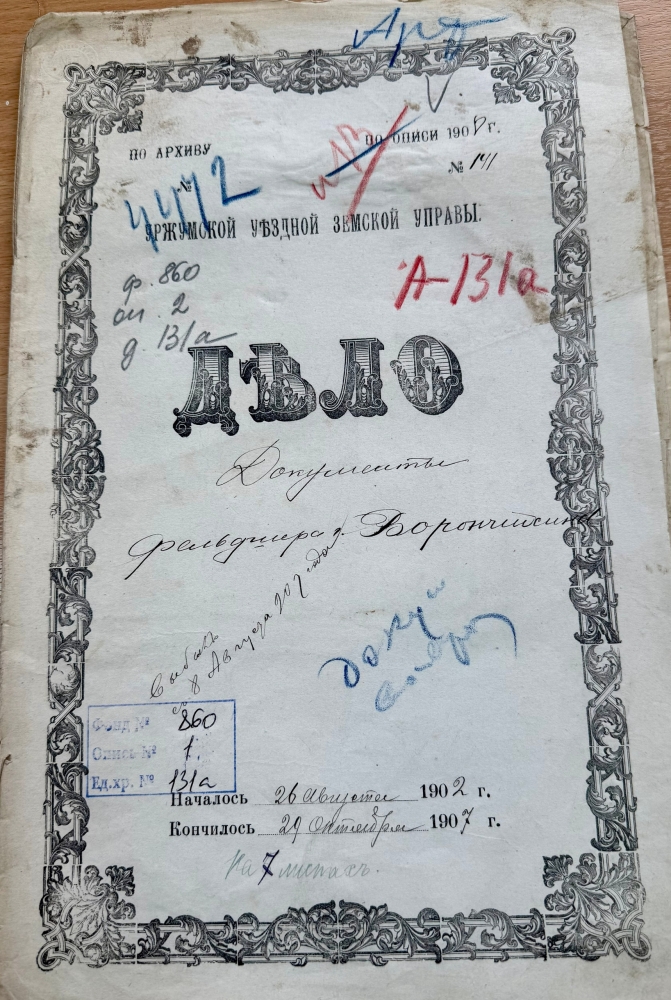 ПО АРХИВУ
ПО ОПИСИ 1908 г.
№ 4472
№ 141
УРЖУМСКОЙ УѢЗДНОЙ ЗЕМСКОЙ УПРАВЫ.
ф. 860
оп. 2
д. 131а
А-131а
ДѢЛО
Документы
фельдшера г. Ворончихина
Выбылъ
съ 8 Августа 907 года
Фонд № 860
Опись № 1
Ед.хр. № 131а
Началось 26 Августа 1902 г.
Кончилось 29 Октября 1907 г.
На 7 листахъ.